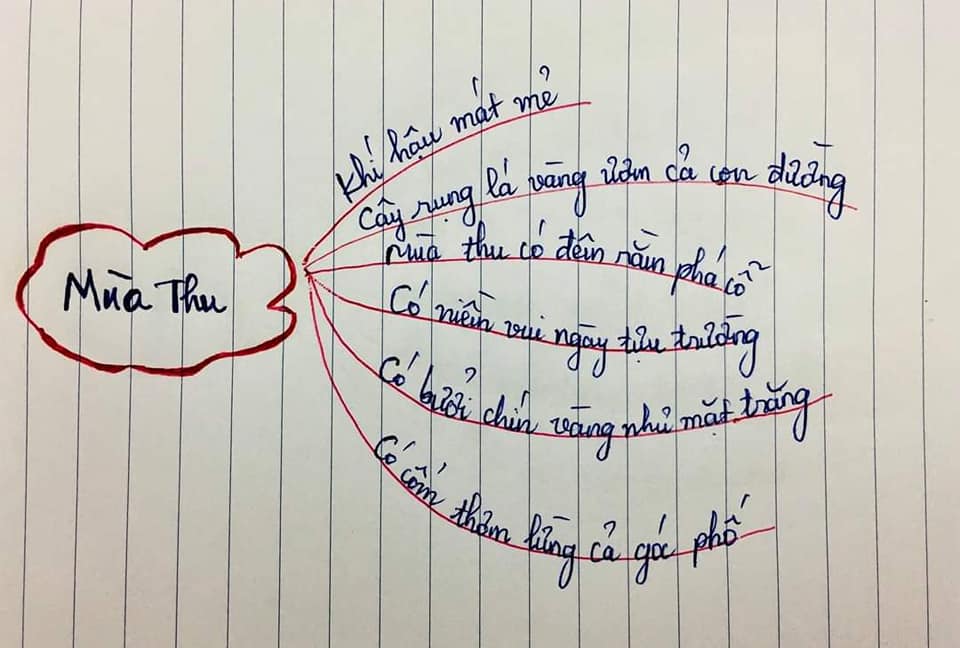 Mùa Thu
Khí hậu mát mẻ
Cây rụng lá vàng ươm cả con đường
Mùa thu có đêm rằm phá cỗ
Có niềm vui ngày tựu trường
Có bưởi chín vàng như mặt trăng
Có cốm thơm lừng cả góc phố